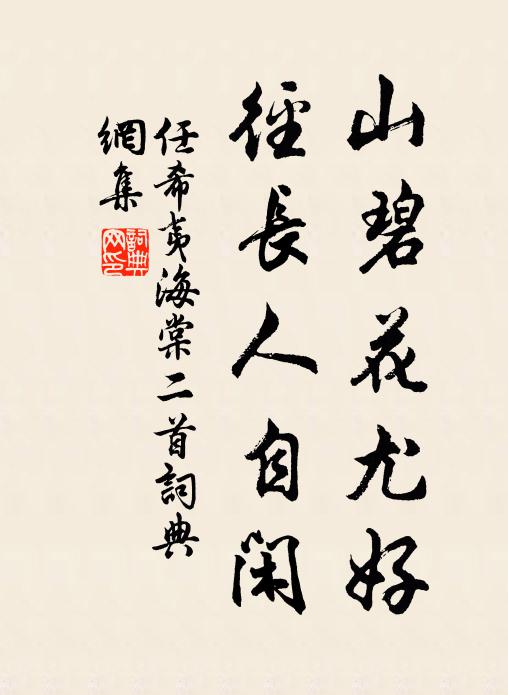 山碧花尤好
徑長人自閑
任希夷海棠二首詞典
網集
詞典
网印